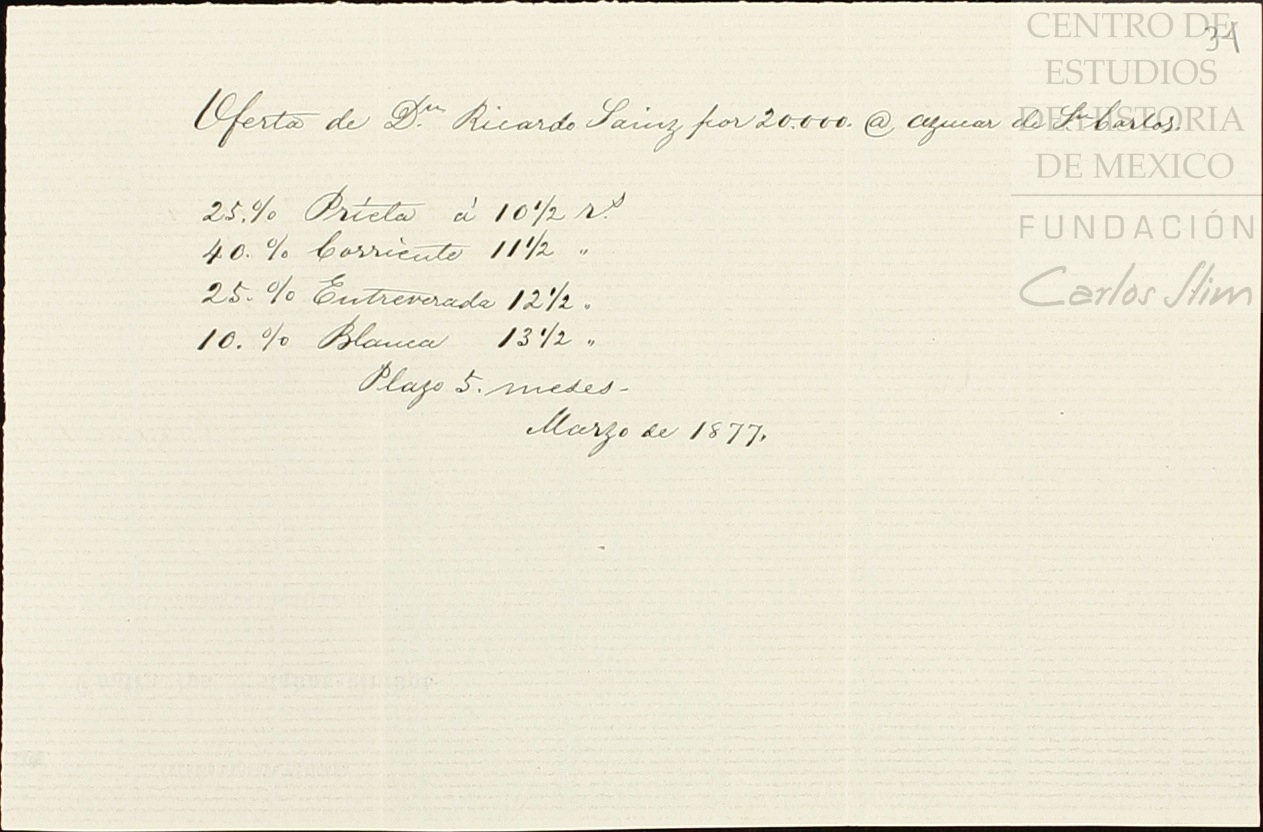 CENTRO DE
ESTUDIOS
DE HISTORIA
DE MEXICO
FUNDACIÓN
Carlos Slim
34
Oferta de D.ⁿ Ricardo Sainz por 20.000. @ azucar de Sⁿ Carlos.
25.% Prieta á 10 1/2 r.ˢ
40.% Corriente 11 1/2 "
25.% Entreverada 12 1/2 "
10.% Blanca 13 1/2 "
Plazo 5. meses-
Marzo de 1877.